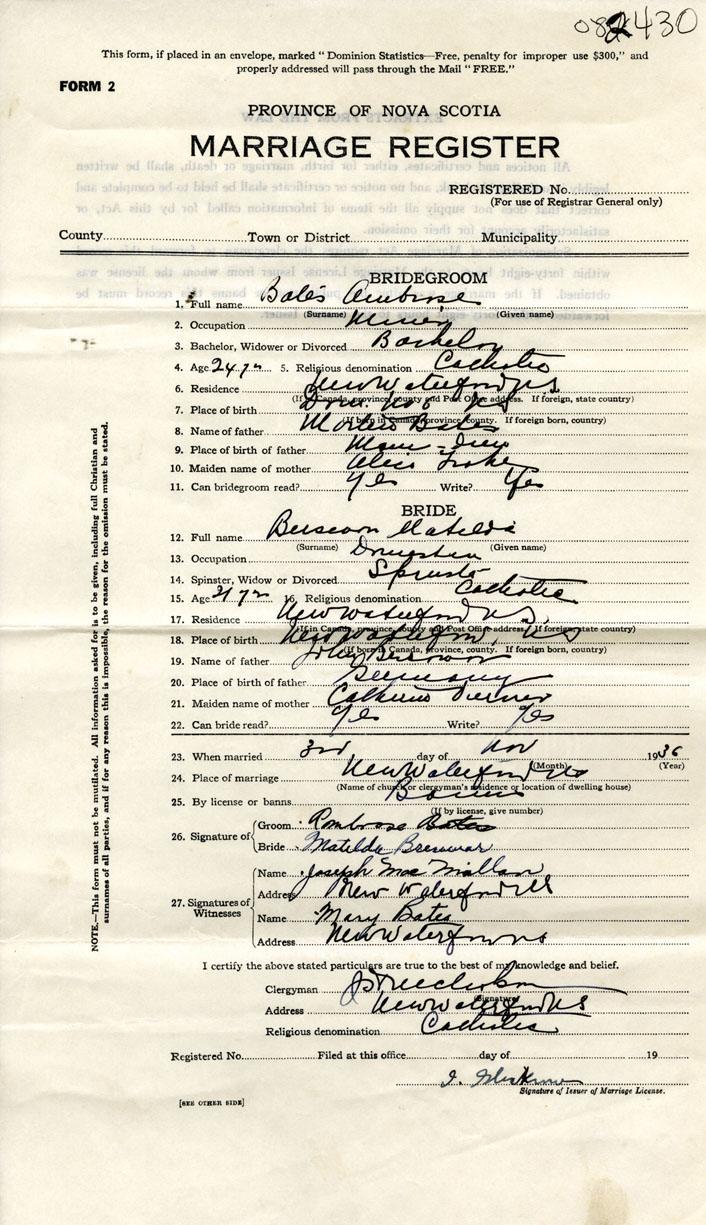 082430
This form, if placed in an envelope, marked "Dominion Statistics—Free, penalty for improper use $300," and
properly addressed will pass through the Mail "FREE."
FORM 2
PROVINCE OF NOVA SCOTIA
MARRIAGE REGISTER
REGISTERED No.
(For use of Registrar General only)
County Town or District Municipality
BRIDEGROOM
1. Full name Bates Ambrose
(Surname) (Given name)
2. Occupation Miner
3. Bachelor, Widower or Divorced Bachelor
4. Age 24 yrs 5. Religious denomination Catholic
6. Residence New Waterford NS
(If in Canada, province, county and Post Office address. If foreign, state country)
7. Place of birth Dom. No 6 NS
(If born in Canada, province, county. If foreign born, country)
8. Name of father Bates
9. Place of birth of father
10. Maiden name of mother
11. Can bridegroom read? Yes Write? Yes
BRIDE
12. Full name Matilda
(Surname) (Given name)
13. Occupation Domestic
14. Spinster, Widow or Divorced Spinster
15. Age 21 yrs 16. Religious denomination Catholic
17. Residence New Waterford N.S.
(If in Canada, province, county and Post Office address. If foreign, state country)
18. Place of birth New Waterford, NS
(If born in Canada, province, county. If foreign born, country)
19. Name of father John
20. Place of birth of father Germany
21. Maiden name of mother
22. Can bride read? Yes Write? Yes
23. When married 3rd day of Nov 1936
(Month) (Year)
24. Place of marriage New Waterford NS
(Name of church or clergyman's residence or location of dwelling house)
25. By license or banns Banns
(If by license, give number)
26. Signature of Groom Ambrose Bates
Bride Matilda
27. Signatures of Witnesses Name Joseph Mac
Address New Waterford NS
Name Mary Bates
Address New Waterford NS
I certify the above stated particulars are true to the best of my knowledge and belief.
Clergyman
(Signature)
Address New Waterford NS
Religious denomination Catholic
Registered No. Filed at this office day of 19
Signature of Issuer of Marriage License.
[SEE OTHER SIDE]
NOTE.—This form must not be mutilated. All information asked for is to be given, including full Christian and
surnames of all parties, and if for any reason this is impossible, the reason for the omission must be stated.